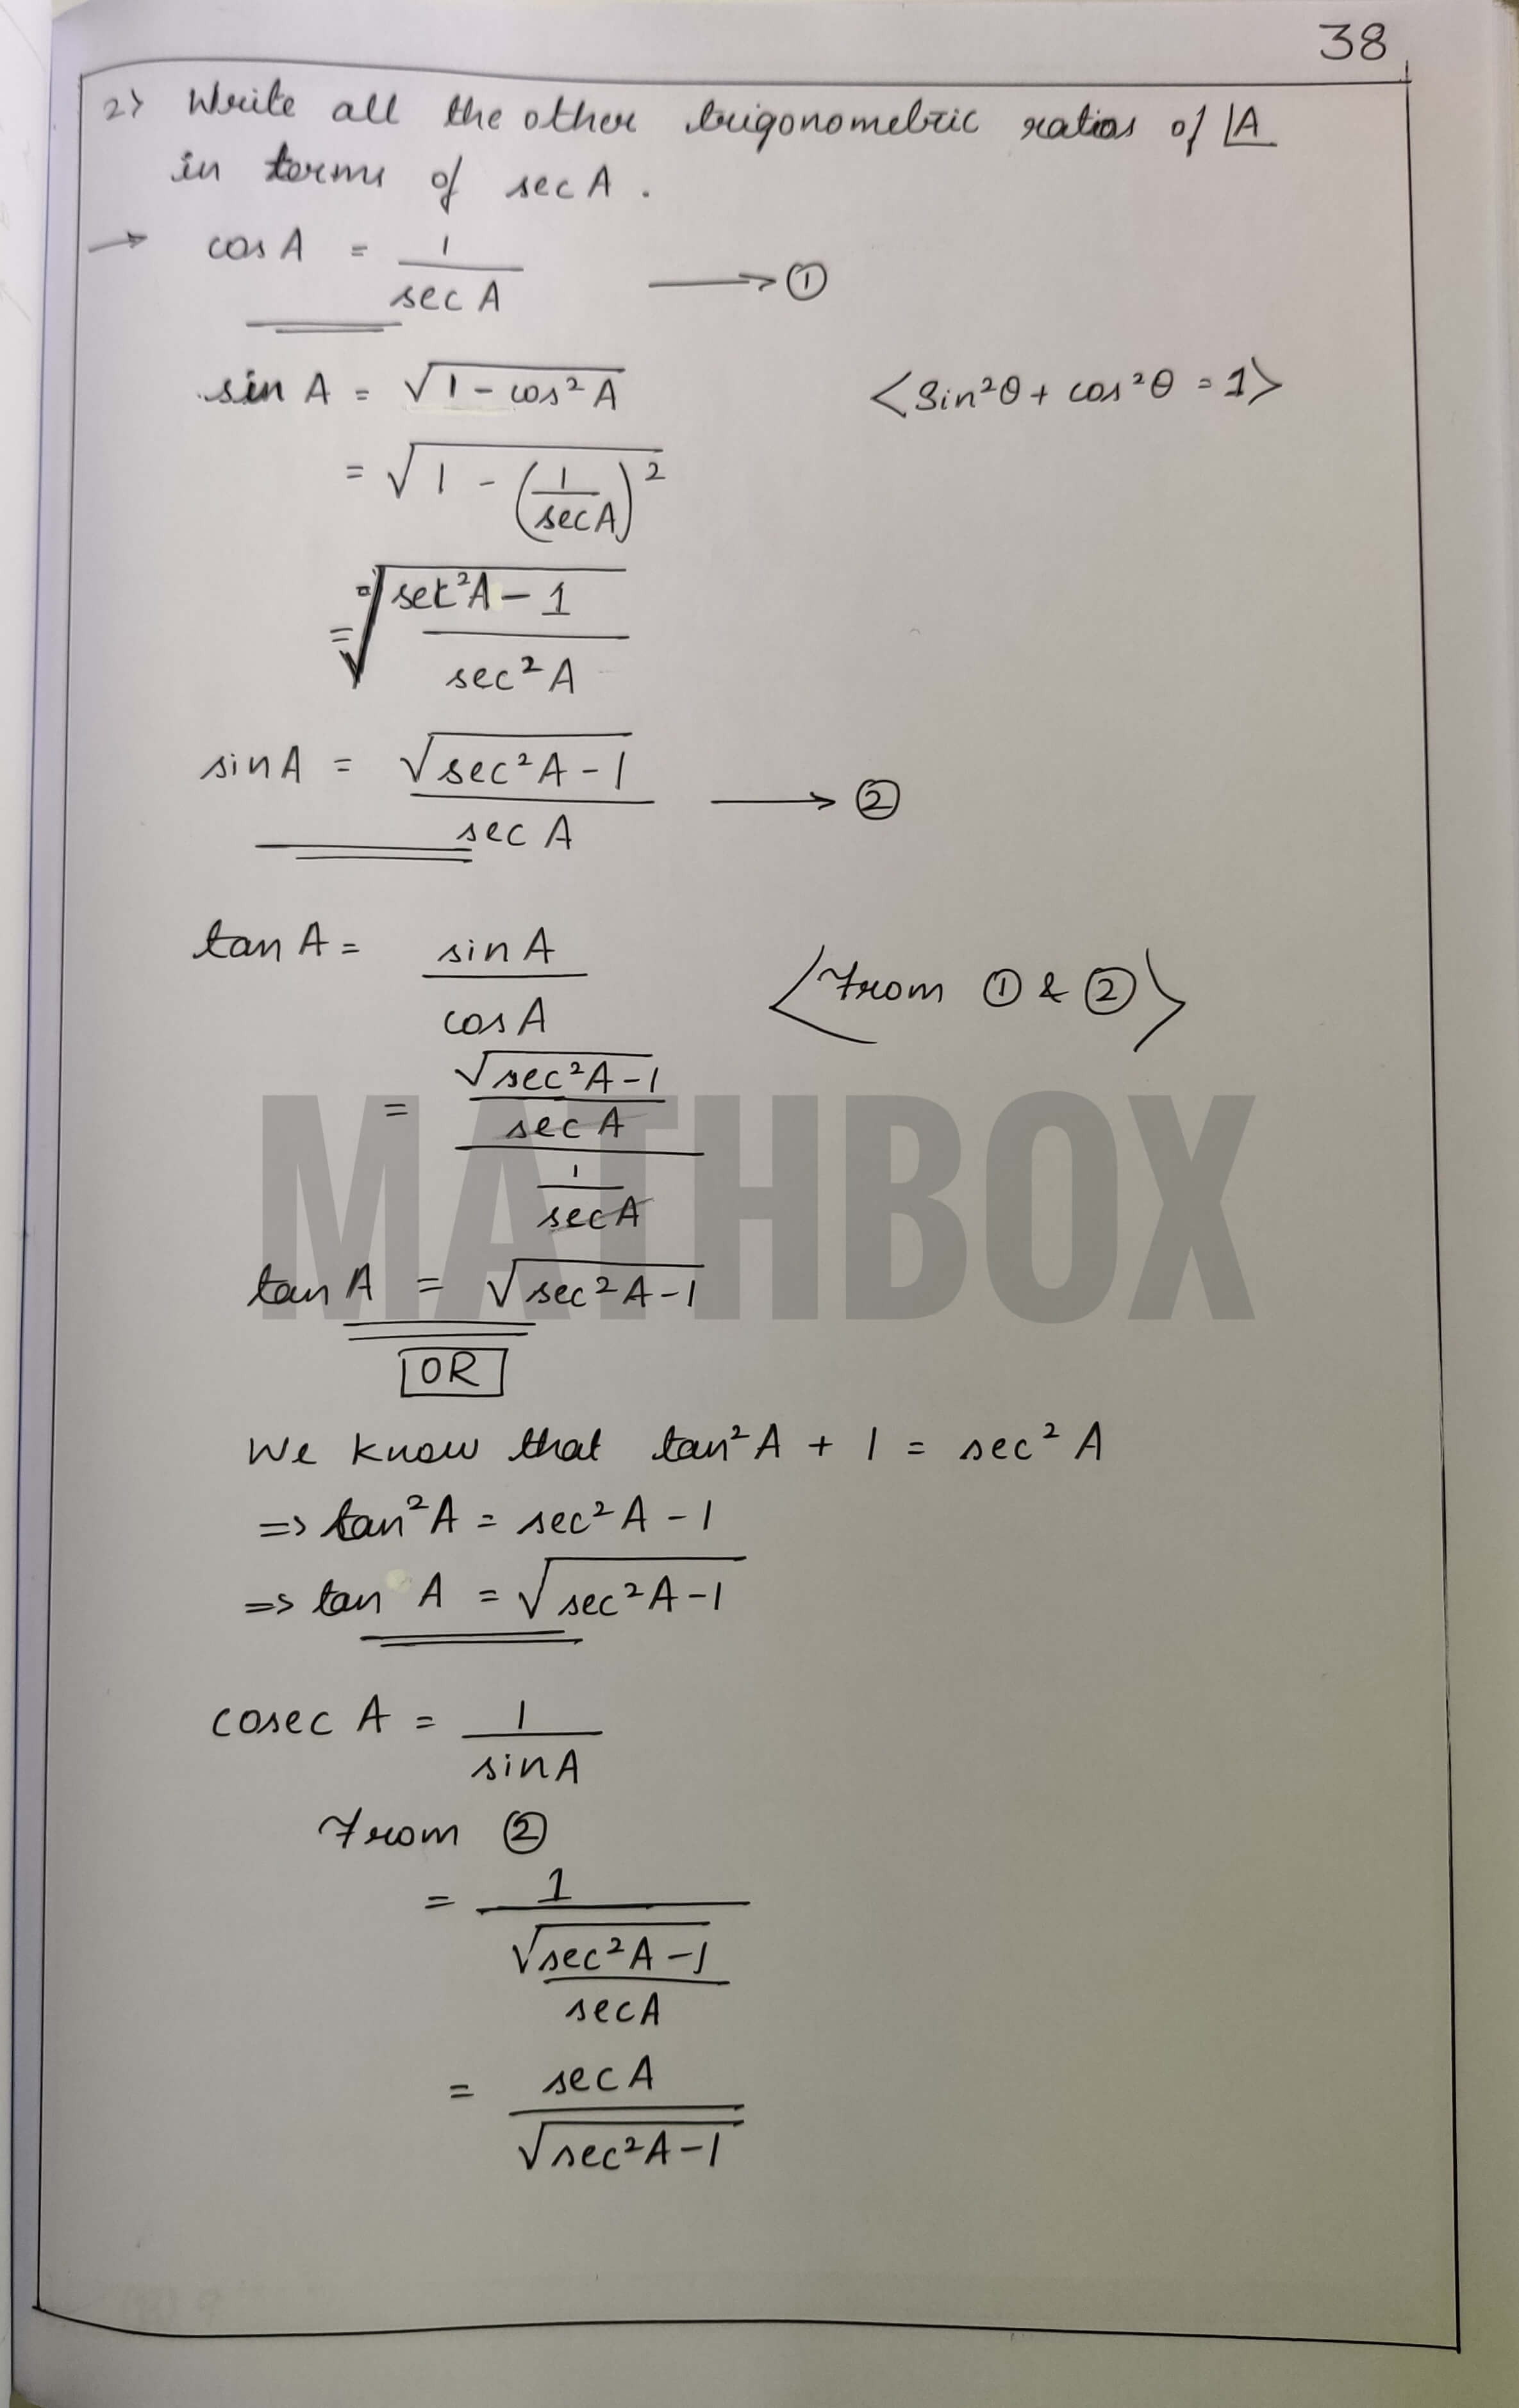 38
2> Write all the other trigonometric ratios of ∠A
in terms of sec A .
→ cos A = 1/sec A → ①
sin A = √(1 - cos² A) <Sin²θ + cos²θ = 1>
= √(1 - (1/sec A)²)
= √((sec²A - 1)/sec² A)
sin A = √(sec² A - 1)/sec A → ②
tan A = sin A/cos A <From ① & ②>
= (√(sec² A - 1)/sec A)/(1/sec A)
tan A = √(sec² A - 1)
OR
We know that tan² A + 1 = sec² A
=> tan² A = sec² A - 1
=> tan A = √(sec² A - 1)
cosec A = 1/sin A
From ②
= 1/(√(sec² A - 1)/sec A)
= sec A/√(sec² A - 1)
MATHBOX